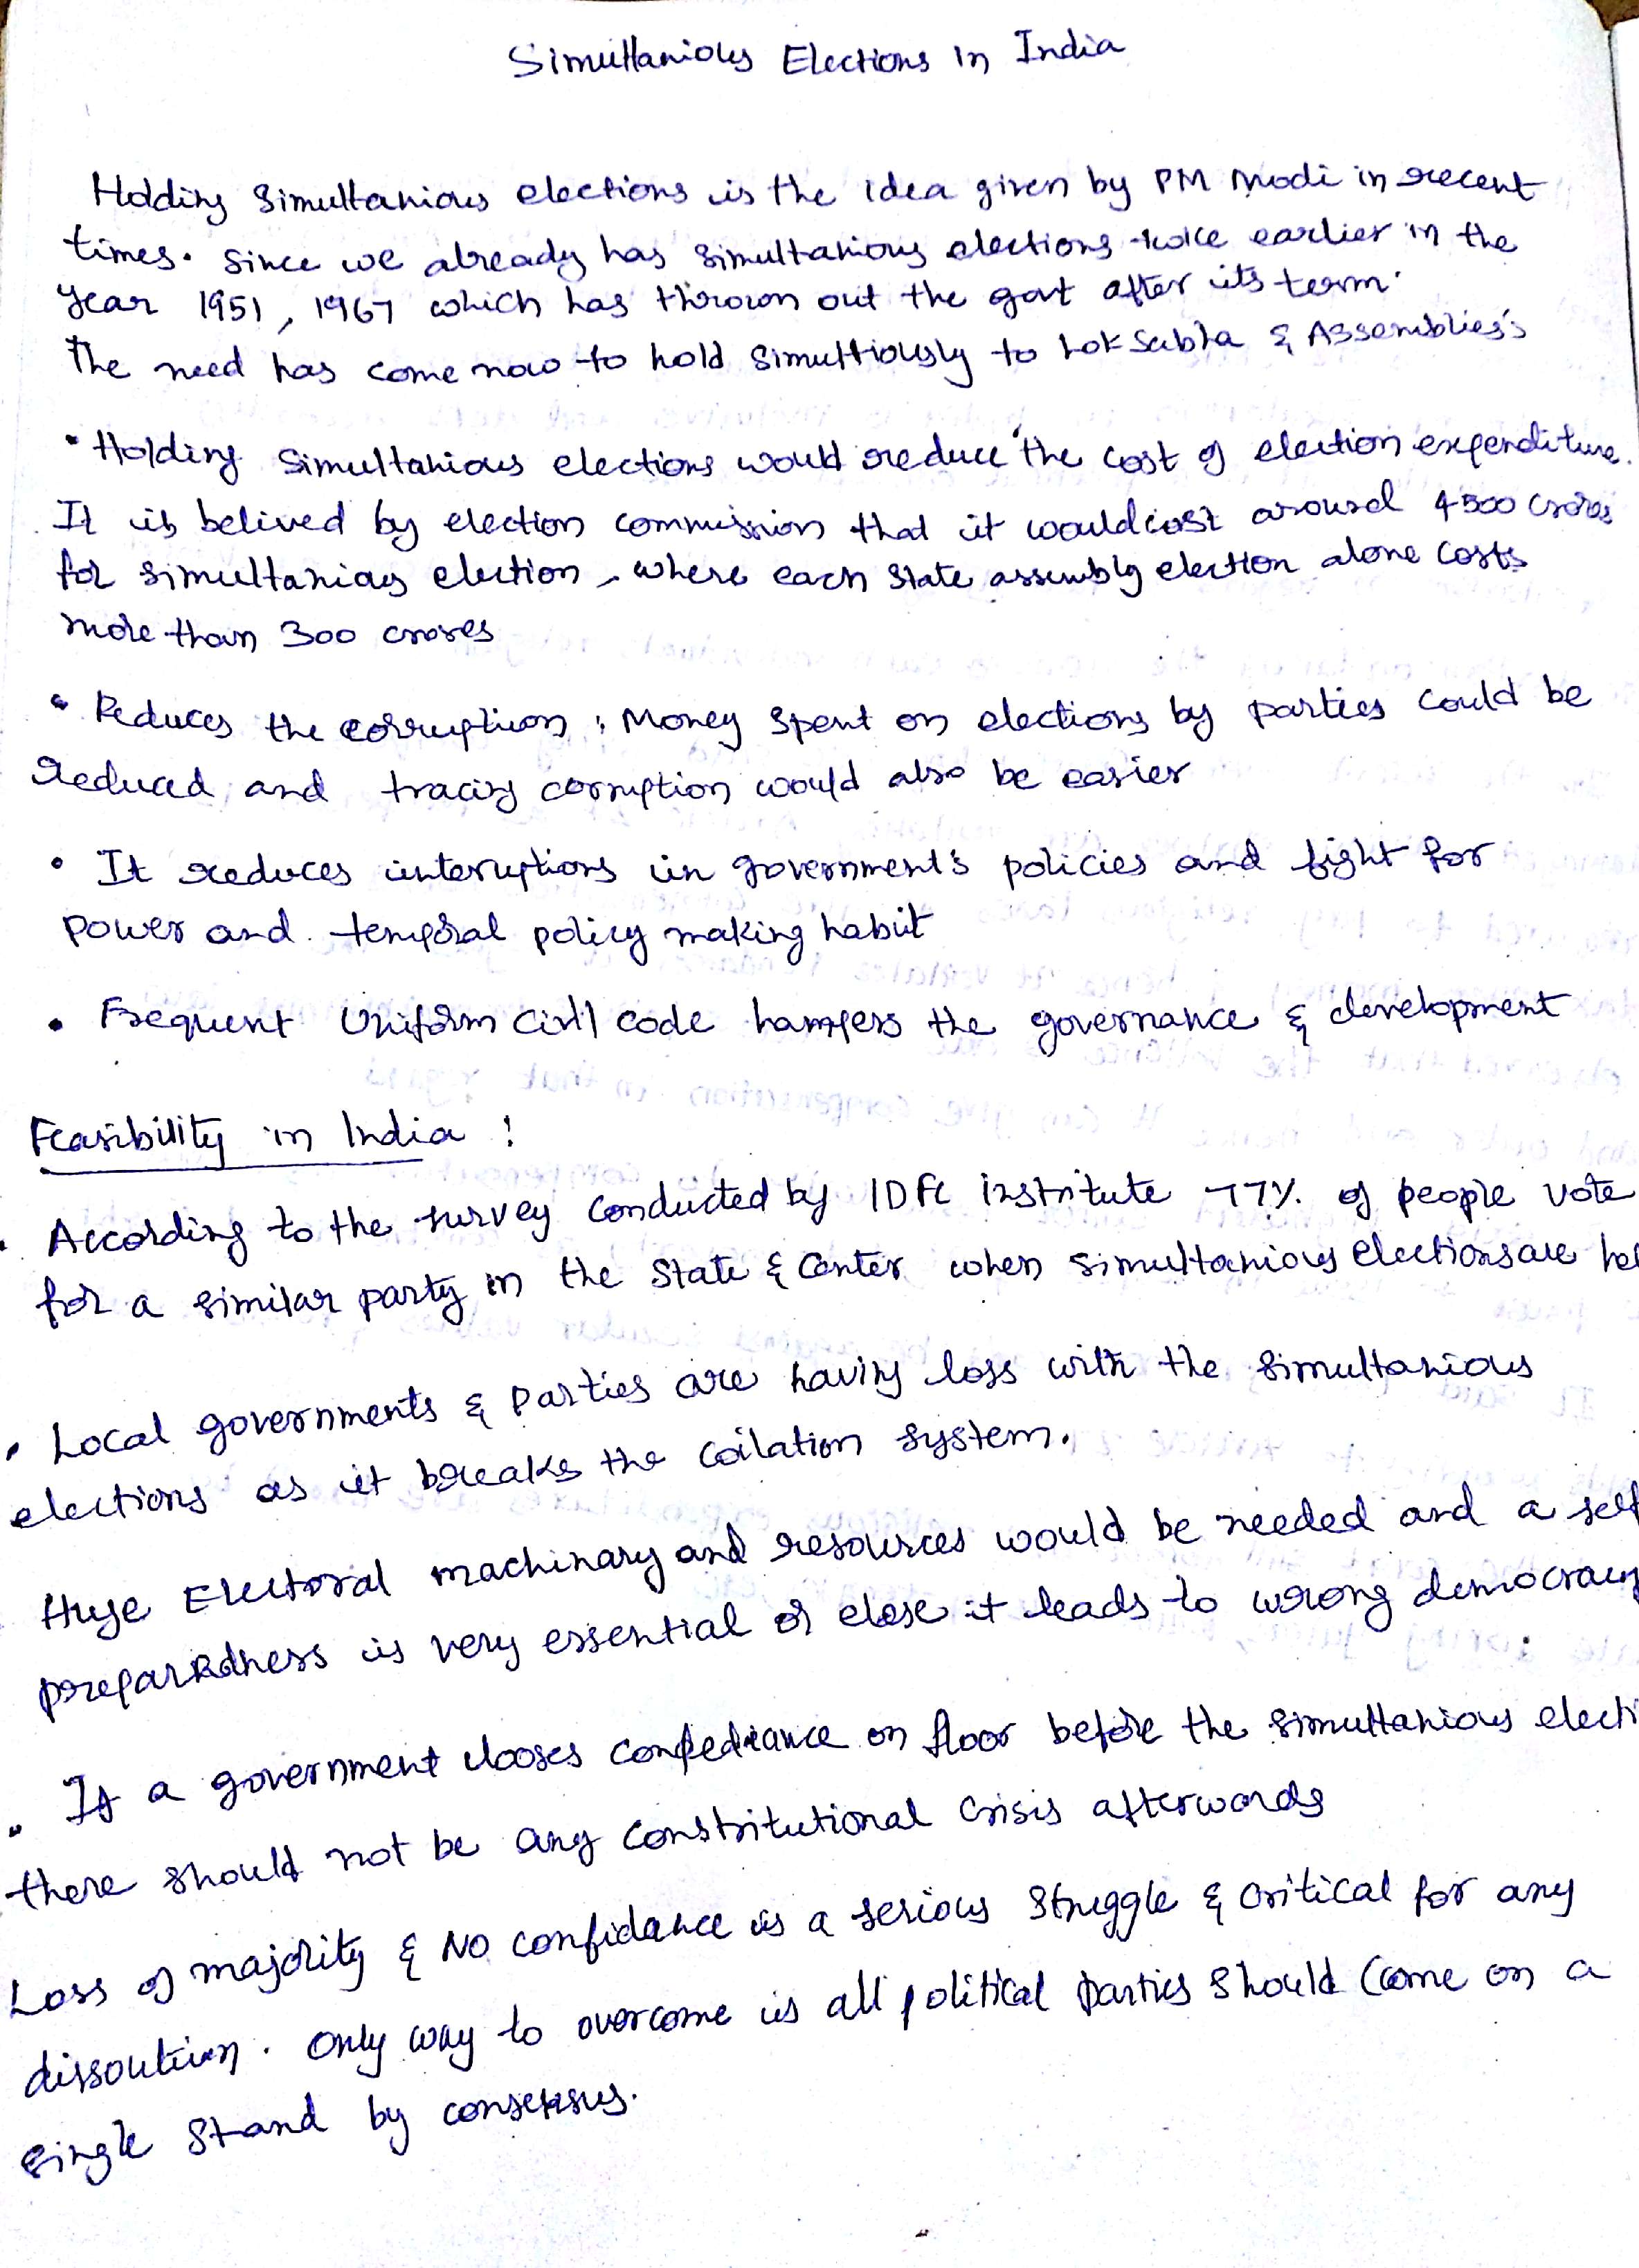 Simultanious Elections in India
Holding Simultanious elections is the idea given by PM Modi in recent
times. Since we already has simultanious elections twice earlier in the
year 1951, 1967 which has thrown out the govt after its term.
The need has come now to hold Simultiously to Lok Sabha & Assemblies's
• Holding Simultanious elections would reduce the cost of election expenditure.
It is belived by election commission that it would cost around 4500 crores
for simultanious election, where each State assembly election alone costs
more than 300 crores
• Reduces the corruption : Money spent on elections by parties could be
reduced and tracing corruption would also be easier
• It reduces interuptions in government's policies and fight for
power and temporal policy making habit
• Frequent Uniform Civil code hampers the governance & development
Feasibility in India :
• According to the survey conducted by IDFC institute 77% of people vote
for a similar party in the State & Center when simultanious elections are hel
• Local governments & Parties are having loss with the simultanious
elections as it breaks the coilation system.
Huge Electoral machinary and resources would be needed and a self
preparedness is very essential or elese it leads to wrong democracy
• If a government looses confediance on floor before the simultanious electi
there should not be any constritutional crisis afterwards
Loss of majority & No confidance is a serious struggle & critical for any
dissoution. Only way to overcome is all political parties should come on a
single stand by consensus.